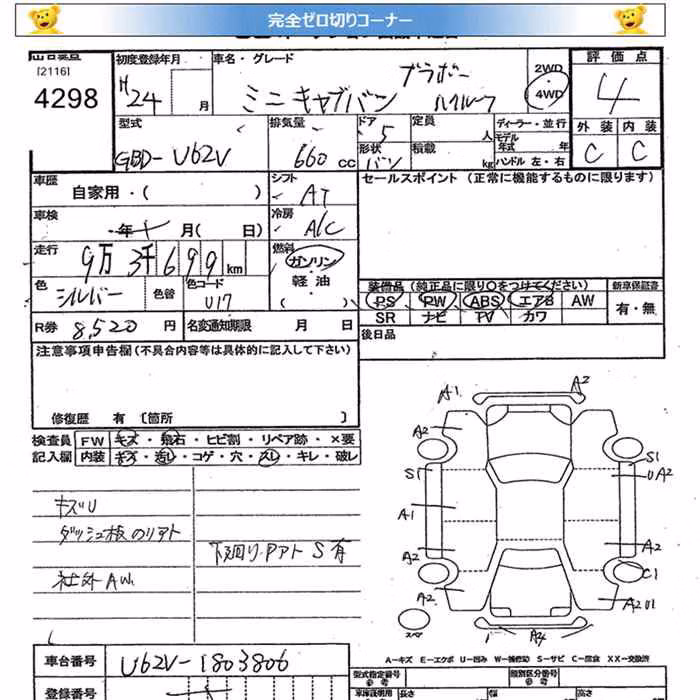 完全ゼロ切りコーナー
[2116]
4298
初度登録年月
H24
月
車名・グレード
ミニキャブバン
ブラボー
ハイルーフ
2WD
4WD
評価点
4
外装 内装
C C
型式
GBD-U62V
排気量
660 cc
ドア
5
形状
バン
定員
人
積載
kg
ディーラー・並行
モデル
年式 年
ハンドル 左・右
車歴
自家用・( )
シフト
AT
車検
年 月( 日)
冷房
A/C
走行
9万3千699km
燃料
ガソリン
・
軽油
( )
色
シルバー
色替
色コード
U17
R券 8,520 円
名変通知期限 月 日
セールスポイント (正常に機能するものに限ります)
装備品 (純正品に限り○をつけてください)
PS PW ABS エアB AW
SR ナビ TV カワ
新車保証書
有・無
後日品
注意事項申告欄(不具合内容等は具体的に記入して下さい)
修復歴 有 [箇所 ]
検査員
記入欄
FW キズ・飛石・ヒビ割・リペア跡・×要
内装 キズ・汚レ・コゲ・穴・スレ・キレ・破レ
キズU
ダッシュ板のリアト
下廻り・Pアト S有
社外AW
A1
A2
A2
S1
S1
UA2
A1
A2
A2
C1
A2
A2U1
スペア
A4
A-キズ E-エクボ U-凹み W-補修跡 S-サビ C-腐食 X-要交換 XX-交換済
車台番号
U62V-1803806
登録番号
型式指定番号
参考
類別区分番号
参考
車庫証明用
長さ
幅
高さ